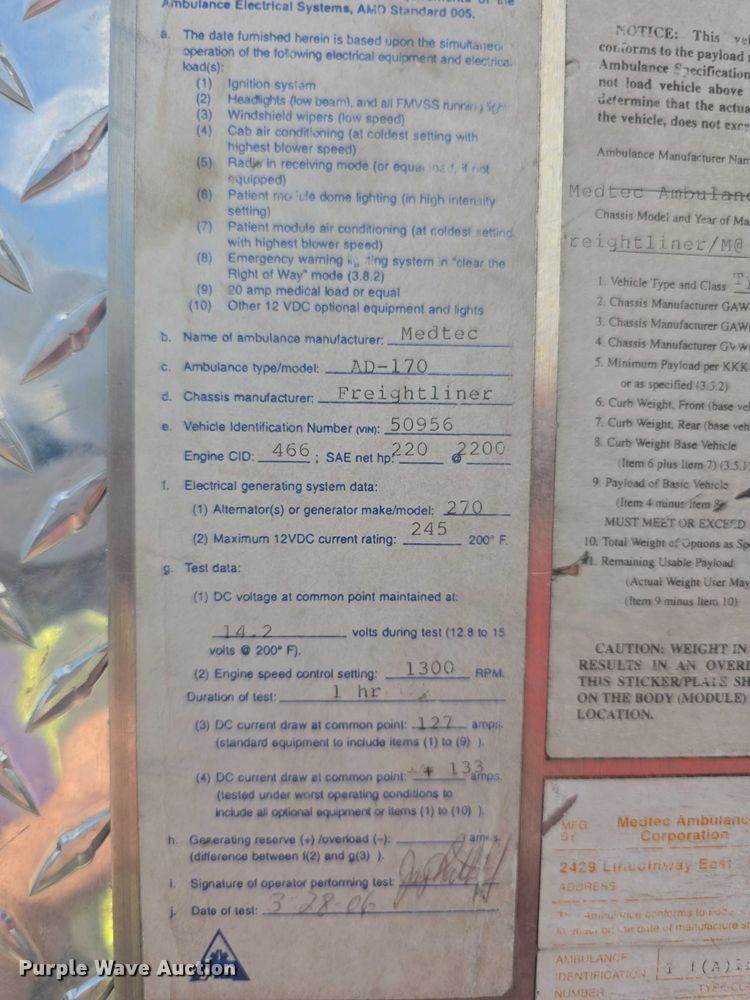 Ambulance Electrical Systems, AMD Standard 005.
a. The date furnished herein is based upon the simultaneou
operation of the following electrical equipment and electrical
load(s):
(1) Ignition system
(2) Headlights (low beam), and all FMVSS running
(3) Windshield wipers (low speed)
(4) Cab air conditioning (at coldest setting with
highest blower speed)
(5) Radio in receiving mode (or equal load, if not
equipped)
(6) Patient module dome lighting (in high intensity
setting)
(7) Patient module air conditioning (at coldest setting
with highest blower speed)
(8) Emergency warning lighting system in "clear the
Right of Way" mode (3.8.2)
(9) 20 amp medical load or equal
(10) Other 12 VDC optional equipment and lights
b. Name of ambulance manufacturer: Medtec
c. Ambulance type/model: AD-170
d. Chassis manufacturer: Freightliner
e. Vehicle Identification Number (VIN): 50956
Engine CID: 466 ; SAE net hp: 220 @ 2200
f. Electrical generating system data:
(1) Alternator(s) or generator make/model: 270
(2) Maximum 12VDC current rating: 245 200° F.
g. Test data:
(1) DC voltage at common point maintained at:
14.2 volts during test (12.8 to 15
volts @ 200° F).
(2) Engine speed control setting: 1300 RPM.
Duration of test: 1 hr
(3) DC current draw at common point: 127 amps.
(standard equipment to include items (1) to (9) ).
(4) DC current draw at common point: + 133 amps.
(tested under worst operating conditions to
include all optional equipment or items (1) to (10) ).
h. Generating reserve (+) /overload (-): amps.
(difference between f(2) and g(3) ).
i. Signature of operator performing test
j. Date of test: 3-28-06
NOTICE: This veh
conforms to the payload
Ambulance Specification
not load vehicle above
determine that the actua
the vehicle, does not exce
Ambulance Manufacturer Nam
Medtec Ambulanc
Chassis Model and Year of Ma
reightliner/M@
1. Vehicle Type and Class
2. Chassis Manufacturer GAW
3. Chassis Manufacturer GAW
4. Chassis Manufacturer GVW
5. Minimum Payload per KKK
or as specified (3.5.2)
6. Curb Weight, Front (base veh
7. Curb Weight, Rear (base veh
8. Curb Weight Base Vehicle
(Item 6 plus Item 7) (3.5.1
9. Payload of Basic Vehicle
(Item 4 minus Item 8
MUST MEET OR EXCEED
10. Total Weight of Options as Sp
11. Remaining Usable Payload
(Actual Weight User May
(Item 9 minus Item 10)
CAUTION: WEIGHT IN
RESULTS IN AN OVERL
THIS STICKER/PLATE SH
ON THE BODY (MODULE)
LOCATION.
MFG BY Medtec Ambulanc
Corporation
2429 Lincolnway East
ADDRESS
ambulance conforms to
in effect on the date of manufacture
AMBULANCE
IDENTIFICATION
NUMBER
Purple Wave Auction